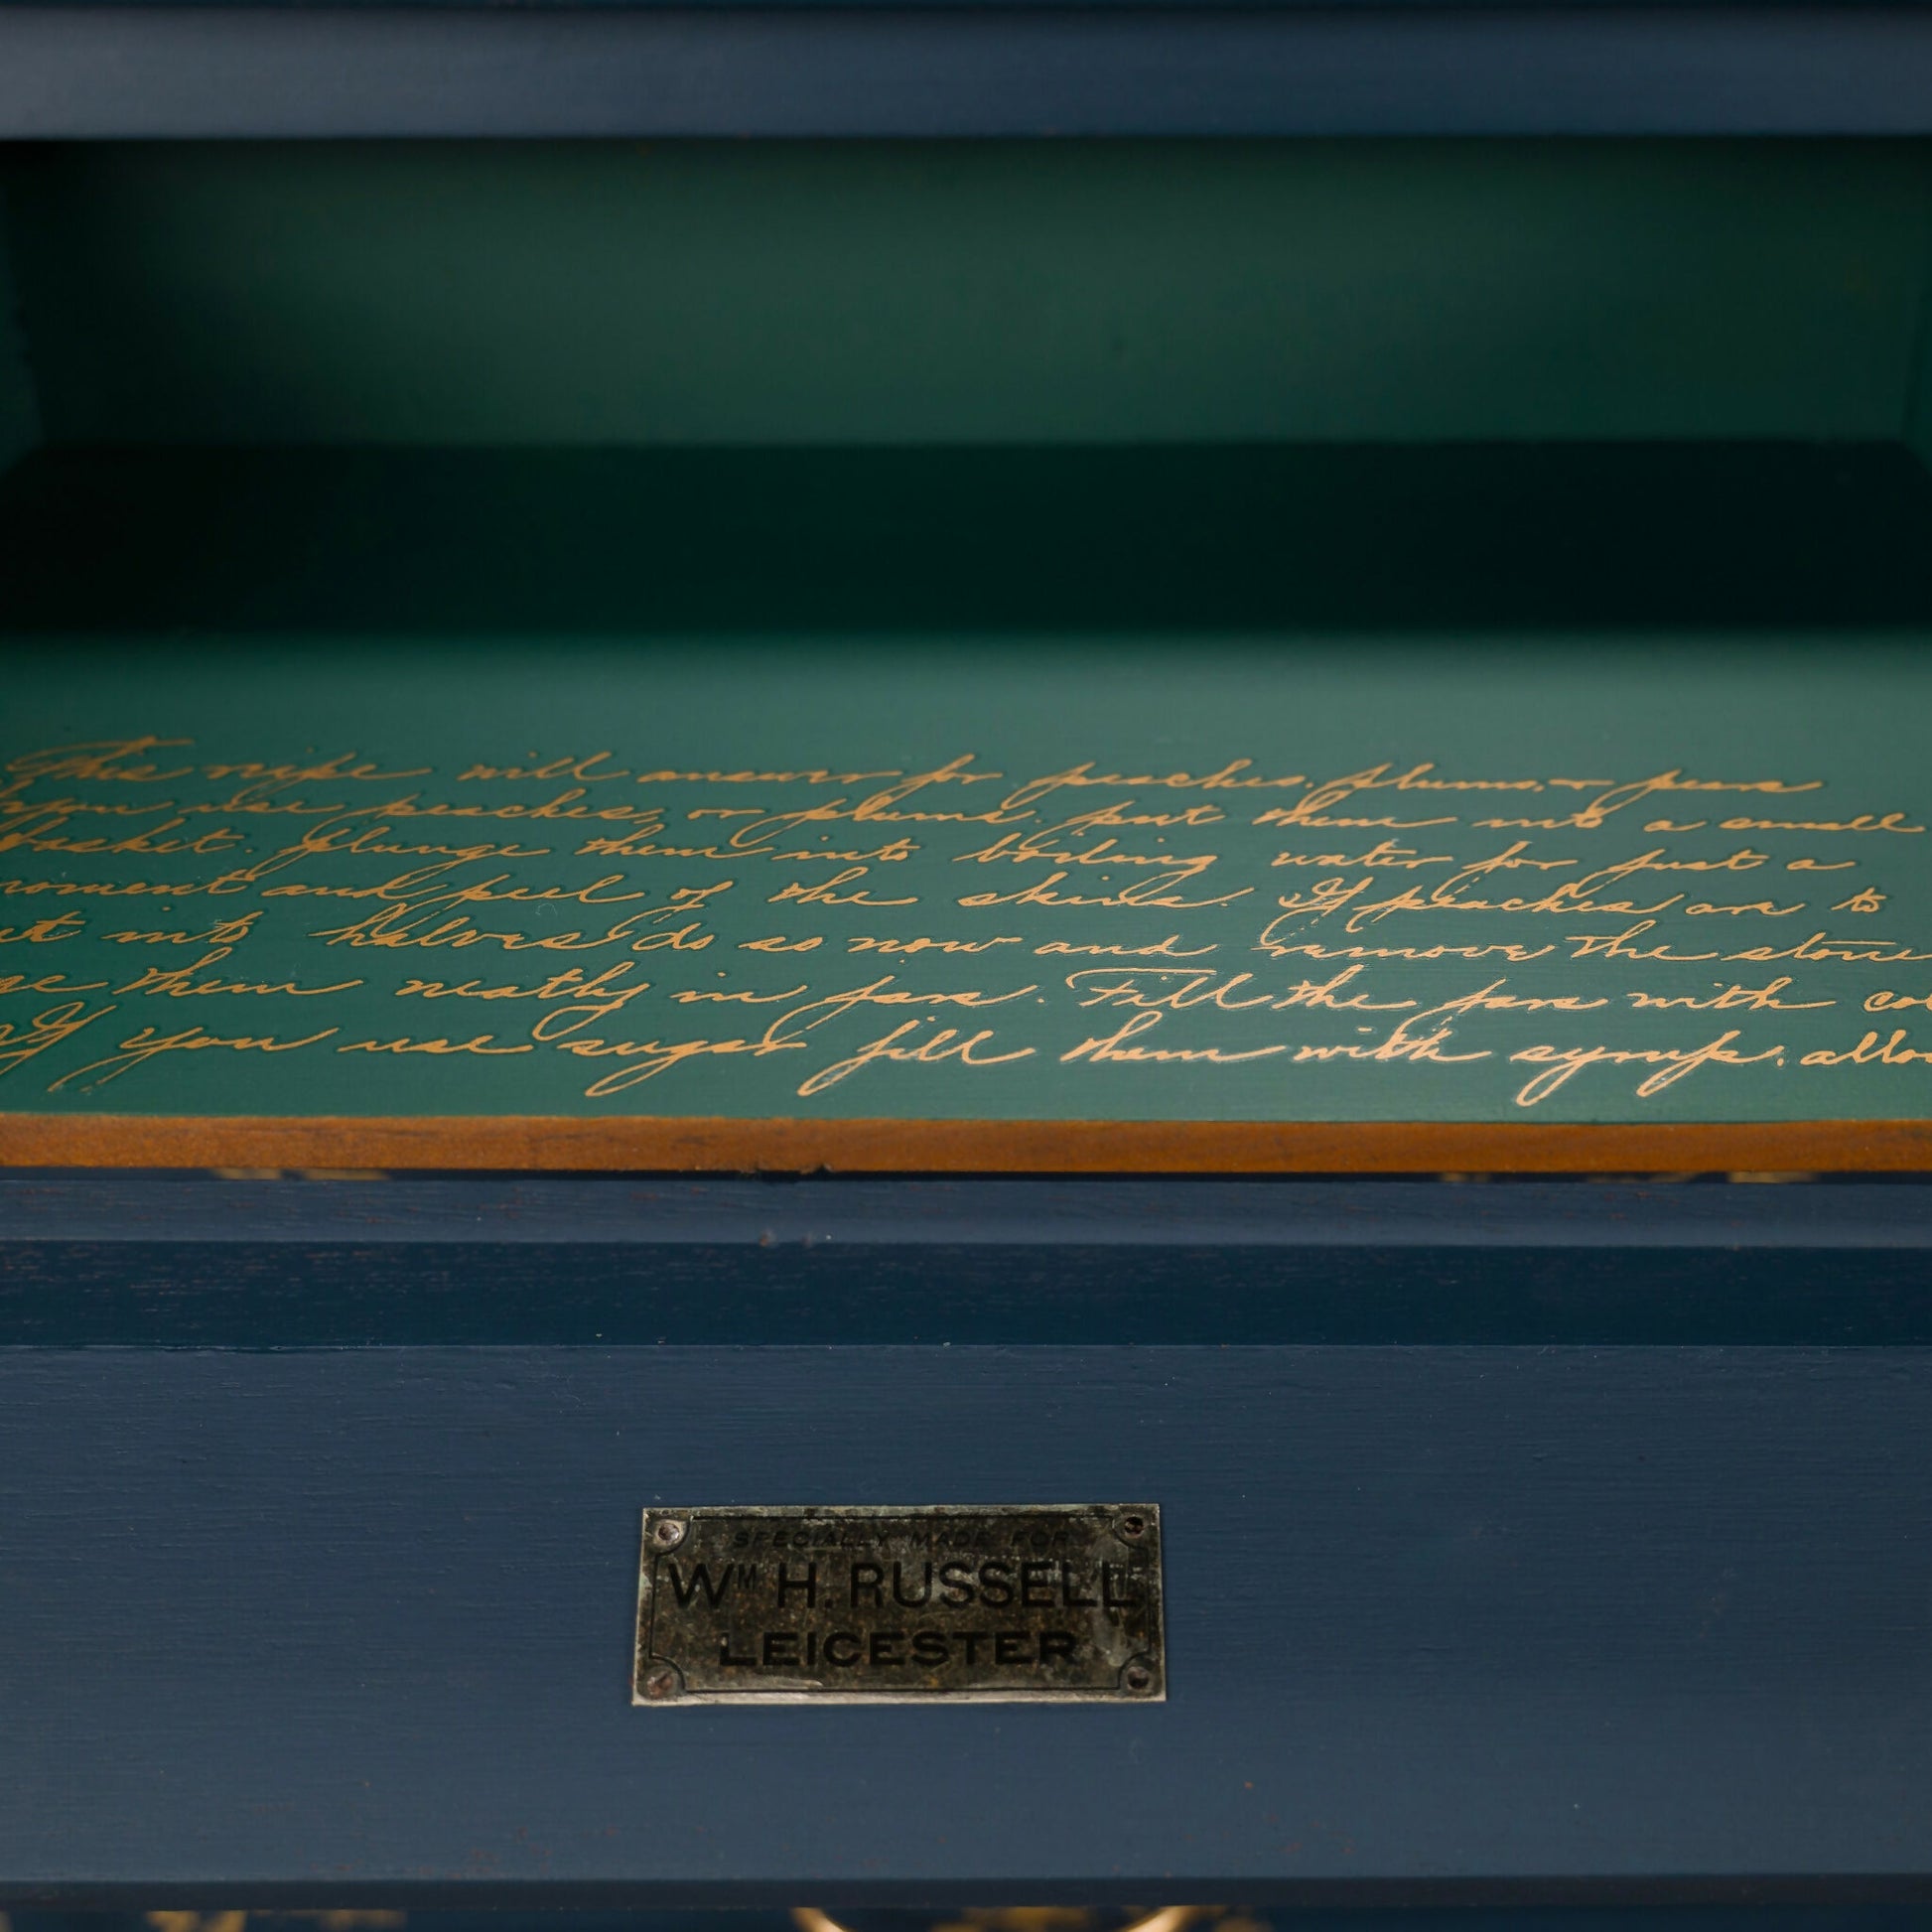 This recipe will answer for peaches, plums, or pears
you use peaches, or plums, put them into a small
basket. Plunge them into boiling water for just a
moment and peel of the skins. If peaches are to
into halves do so now and remove the stone
them neatly in jars. Fill the jars with
If you use sugar fill them with syrup. allo
SPECIALLY MADE FOR
WM H. RUSSELL
LEICESTER